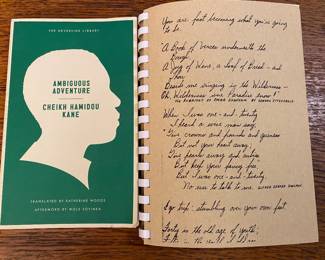 THE NEVERSINK LIBRARY
AMBIGUOUS
ADVENTURE
CHEIKH HAMIDOU
KANE
TRANSLATED BY KATHERINE WOODS
AFTERWORD BY WOLE SOYINKA
You are fast becoming what you're going
to be.
A Book of Verses underneath the
Bough,
A Jug of Wine, a Loaf of Bread - and
Thou
Beside me singing in the Wilderness -
Wilderness
THE RUBAIYAT OF OMAR KHAYYAM
When I was one-and-twenty
I heard a wise man say,
"Give crowns and pounds and guineas
But not your heart away;
Give pearls away and rubies
But keep your fancy free."
But I was one-and-twenty
No use to talk to me.
Ego trip: stumbling over your own feet
Forty is the old age of youth;